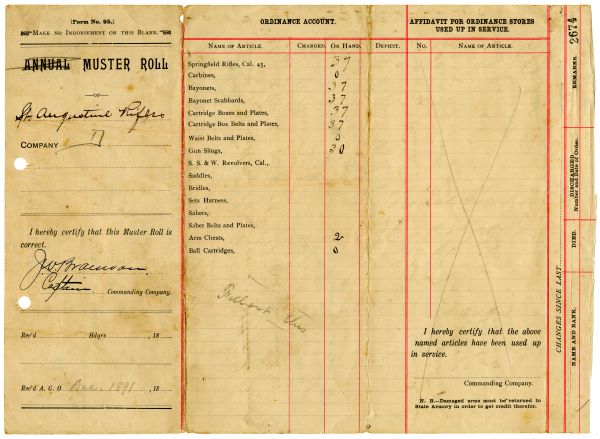 (Form No. 98.)
MAKE NO INDORSEMENT ON THIS BLANK.
ANNUAL MUSTER ROLL
OF
St. Augustine Rifles
COMPANY D
I hereby certify that this Muster Roll is
correct.
Captain
Commanding Company.
Rec'd Hdqrs , 18
Rec'd A. G. O Dec. 1891 , 18
ORDINANCE ACCOUNT.
NAME OF ARTICLE. CHARGED. ON HAND. DEFICIT.
Springfield Rifles, Cal. 45, 37
Carbines, 0
Bayonets, 37
Bayonet Scabbards, 37
Cartridge Boxes and Plates, 37
Cartridge Box Belts and Plates, 37
Waist Belts and Plates, 0
Gun Slings, 30
S. S. & W. Revolvers, Cal.,
Saddles,
Bridles,
Sets Harness,
Sabers,
Saber Belts and Plates,
Arm Chests, 2
Ball Cartridges, 0
AFFIDAVIT FOR ORDINANCE STORES
USED UP IN SERVICE.
No. NAME OF ARTICLE.
I hereby certify that the above
named articles have been used up
in service.
Commanding Company.
N. B.—Damaged arms must be returned to
State Armory in order to get credit therefor.
CHANGES SINCE LAST
NAME AND RANK. DIED. DISCHARGED. Number and Date of Order. REMARKS.
2674